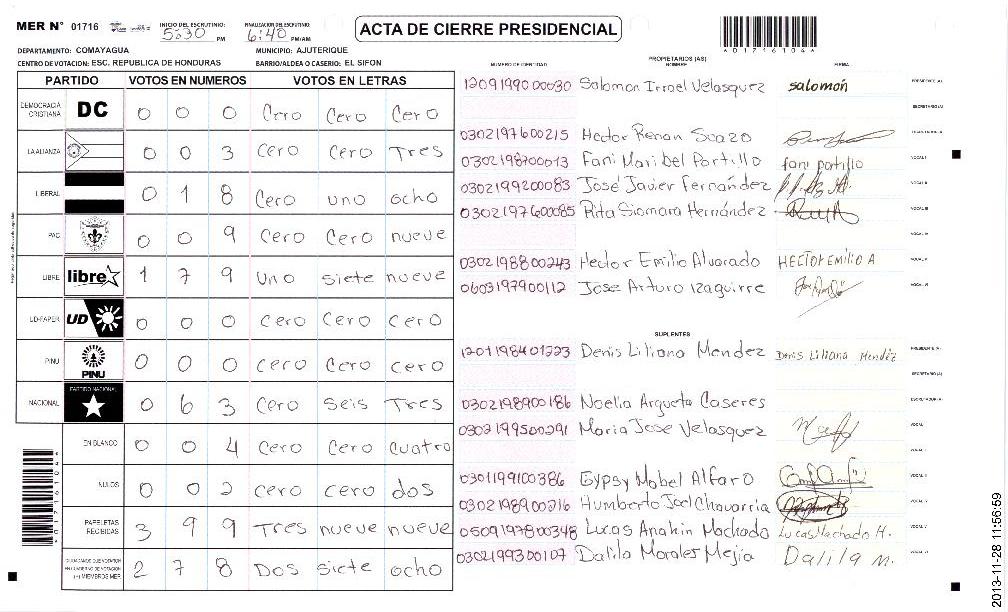 MER N° 01716
INICIO DEL ESCRUTINIO: 5:30 PM
FINALIZACIÓN DEL ESCRUTINIO: 6:40 PM/AM
ACTA DE CIERRE PRESIDENCIAL
DEPARTAMENTO: COMAYAGUA
MUNICIPIO: AJUTERIQUE
CENTRO DE VOTACION: ESC. REPUBLICA DE HONDURAS
BARRIO/ALDEA O CASERIO: EL SIFON
PARTIDO VOTOS EN NUMEROS VOTOS EN LETRAS
DEMOCRACIA CRISTIANA DC 0 0 0 Cero Cero Cero
LA ALIANZA 0 0 3 Cero Cero Tres
LIBERAL 0 1 8 Cero uno ocho
PAC 0 0 9 Cero Cero nueve
LIBRE libre 1 7 9 Uno siete nueve
UD-FAPER UD 0 0 0 Cero Cero Cero
PINU PINU 0 0 0 Cero Cero Cero
NACIONAL PARTIDO NACIONAL 0 6 3 Cero Seis Tres
EN BLANCO 0 0 4 Cero Cero Cuatro
NULOS 0 0 2 Cero cero dos
PAPELETAS RECIBIDAS 3 9 9 Tres nueve nueve
(+) MIEMBROS MER 2 7 8 Dos siete ocho
PROPIETARIOS (AS)
NUMERO DE IDENTIDAD NOMBRE FIRMA
1209199000030 Salomon Irrael Velasquez salomón PRESIDENTE (A)
SECRETARIO (A)
0302197600215 Hector Renan Suazo
0302198700013 Fani Maribel Portillo fani portillo VOCAL I
0302199200083 José Javier Fernández VOCAL II
0302197600085 Rita Siomara Hernández VOCAL III
VOCAL IV
0302198800243 Hector Emilio Alvarado HECTOR EMILIO A VOCAL V
0603197900112 Jose Arturo Izaguirre VOCAL VI
SUPLENTES
1201198401223 Denis Liliana Mendez Denis Liliana Mendez PRESIDENTE (A)
SECRETARIO (A)
0302198900186 Noelia Argueta Caseres ESCRUTADOR (A)
0302199500291 Maria Jose Velasquez VOCAL I
0301199100386 Gypsy Mabel Alfaro VOCAL III
0302198900216 Humberto Joel Chavarria VOCAL IV
0509197800348 Lucas Anahin Machado Lucas Machado H. VOCAL V
0302199300107 Dalila Morales Mejia Dalila M. VOCAL VI
2013-11-28 11:56:59